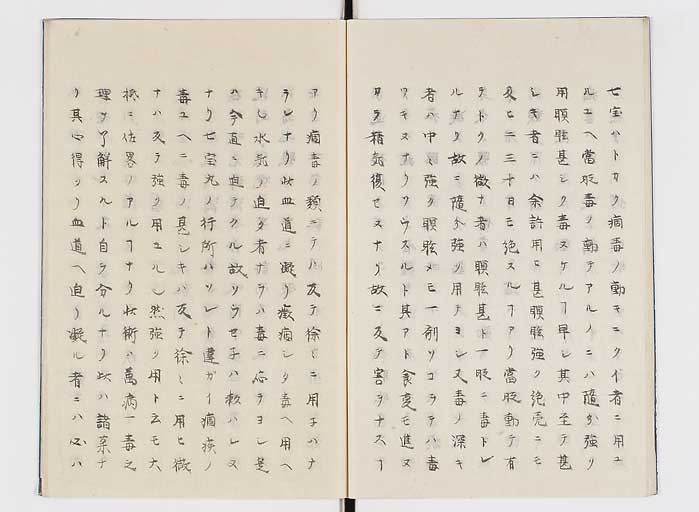 七宝ハトカク痼毒ノ動キニクイ者ニ用ユ
ルユヘ當反毒ノ動テアルノニハ随分強ク
用瞑眩甚シク毒ヌケルヿ早シ其中至テ甚
シキ者ニハ余計用ヒ甚瞑眩強ク絶売ニモ
及ヒニ三十日モ絶スルヿアリ當反動テ有
テトクノ微ナ者ハ瞑眩甚ト一反ニ毒トレ
ルナリ故ニ随分強ク用テヨシ又毒ノ深キ
者ハ中々強ク瞑眩メモ一剤ツコラテハ毒
ツキヌナリソウスルト其アト食変モ進ヌ
カラ精気復セヌナリ故ニ反テ害ヲナスヿ
アリ痼毒ノ類ニテハ反テ徐々ニ用子ハナ
ラヒナリ此血道ニ凝リ癥痼シタ毒ヘ用ヘ
キレ水気ノ迫タ者ナラハ毒ニ応テヨシ是
ハ今直ニ迫テクル故ソウセ子ハ救ハレヌ
ナリ七宝丸ノ行所ハソレト違ガイ痼疾ノ
毒ユヘニ毒ノ甚シキハ反テ徐々ニ用ヒ微
ナハ反テ強ク用ユルシ然強ク用ト云モ大
抵ニ佐畧ノアルヿナリ此術ハ萬病一毒之
理ヲ了解スルト自ラ分ルナリ此ハ諸薬ナ
リ其心得ソリ血道ヘ迫リ凝ル者ニハ必ハ